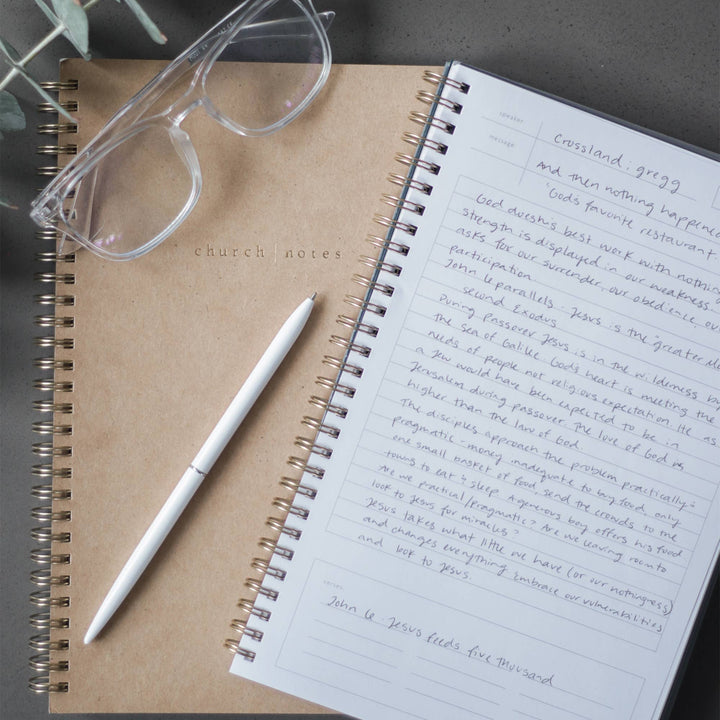 church | notes
speaker
Crossland: gregg
message
And then nothing happened
"God's favorite restaurant
God doesn's best work with nothing
strength is displayed in our weakness.
asks for our surrender, our obedience, our
participation.
John 6 parallels - Jesus is the "greater
second Exodus
During Passover Jesus is in the wilderness
the Sea of Galilee. God's heart is meeting the
needs of people not religious expectation. He as
a Jew would have been expected to be in
Jerusalem during passover. The love of God is
higher than the law of God.
The disciples approach the problem practically -
pragmatic - money inadequate to buy food, only
one small basket of food, send the crowds to the
towns to eat & sleep. A generous boy offers his food
Are we practical/pragmatic? Are we leaving room to
look to Jesus for miracles?
Jesus takes what little we have (or our nothingness)
and changes everything. Embrace our vulnerabilities
and look to Jesus.
verses
John 6 - Jesus feeds five thousand